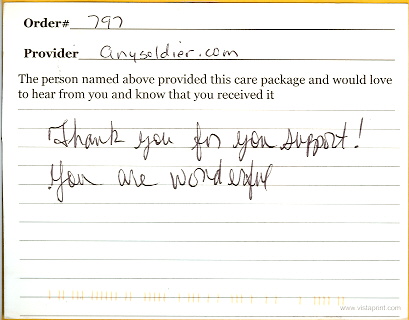 Order# 797
Provider anysoldier.com
The person named above provided this care package and would love
to hear from you and know that you received it
Thank you for you support!
You are wonderful
www.vistaprint.com